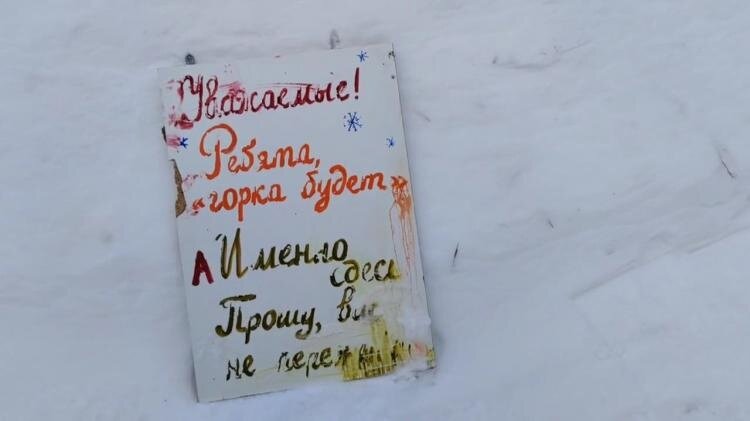 Уважаемые!
Ребята,
«горка будет»
А Именно
сдесь
Прошу, вы
не пережи